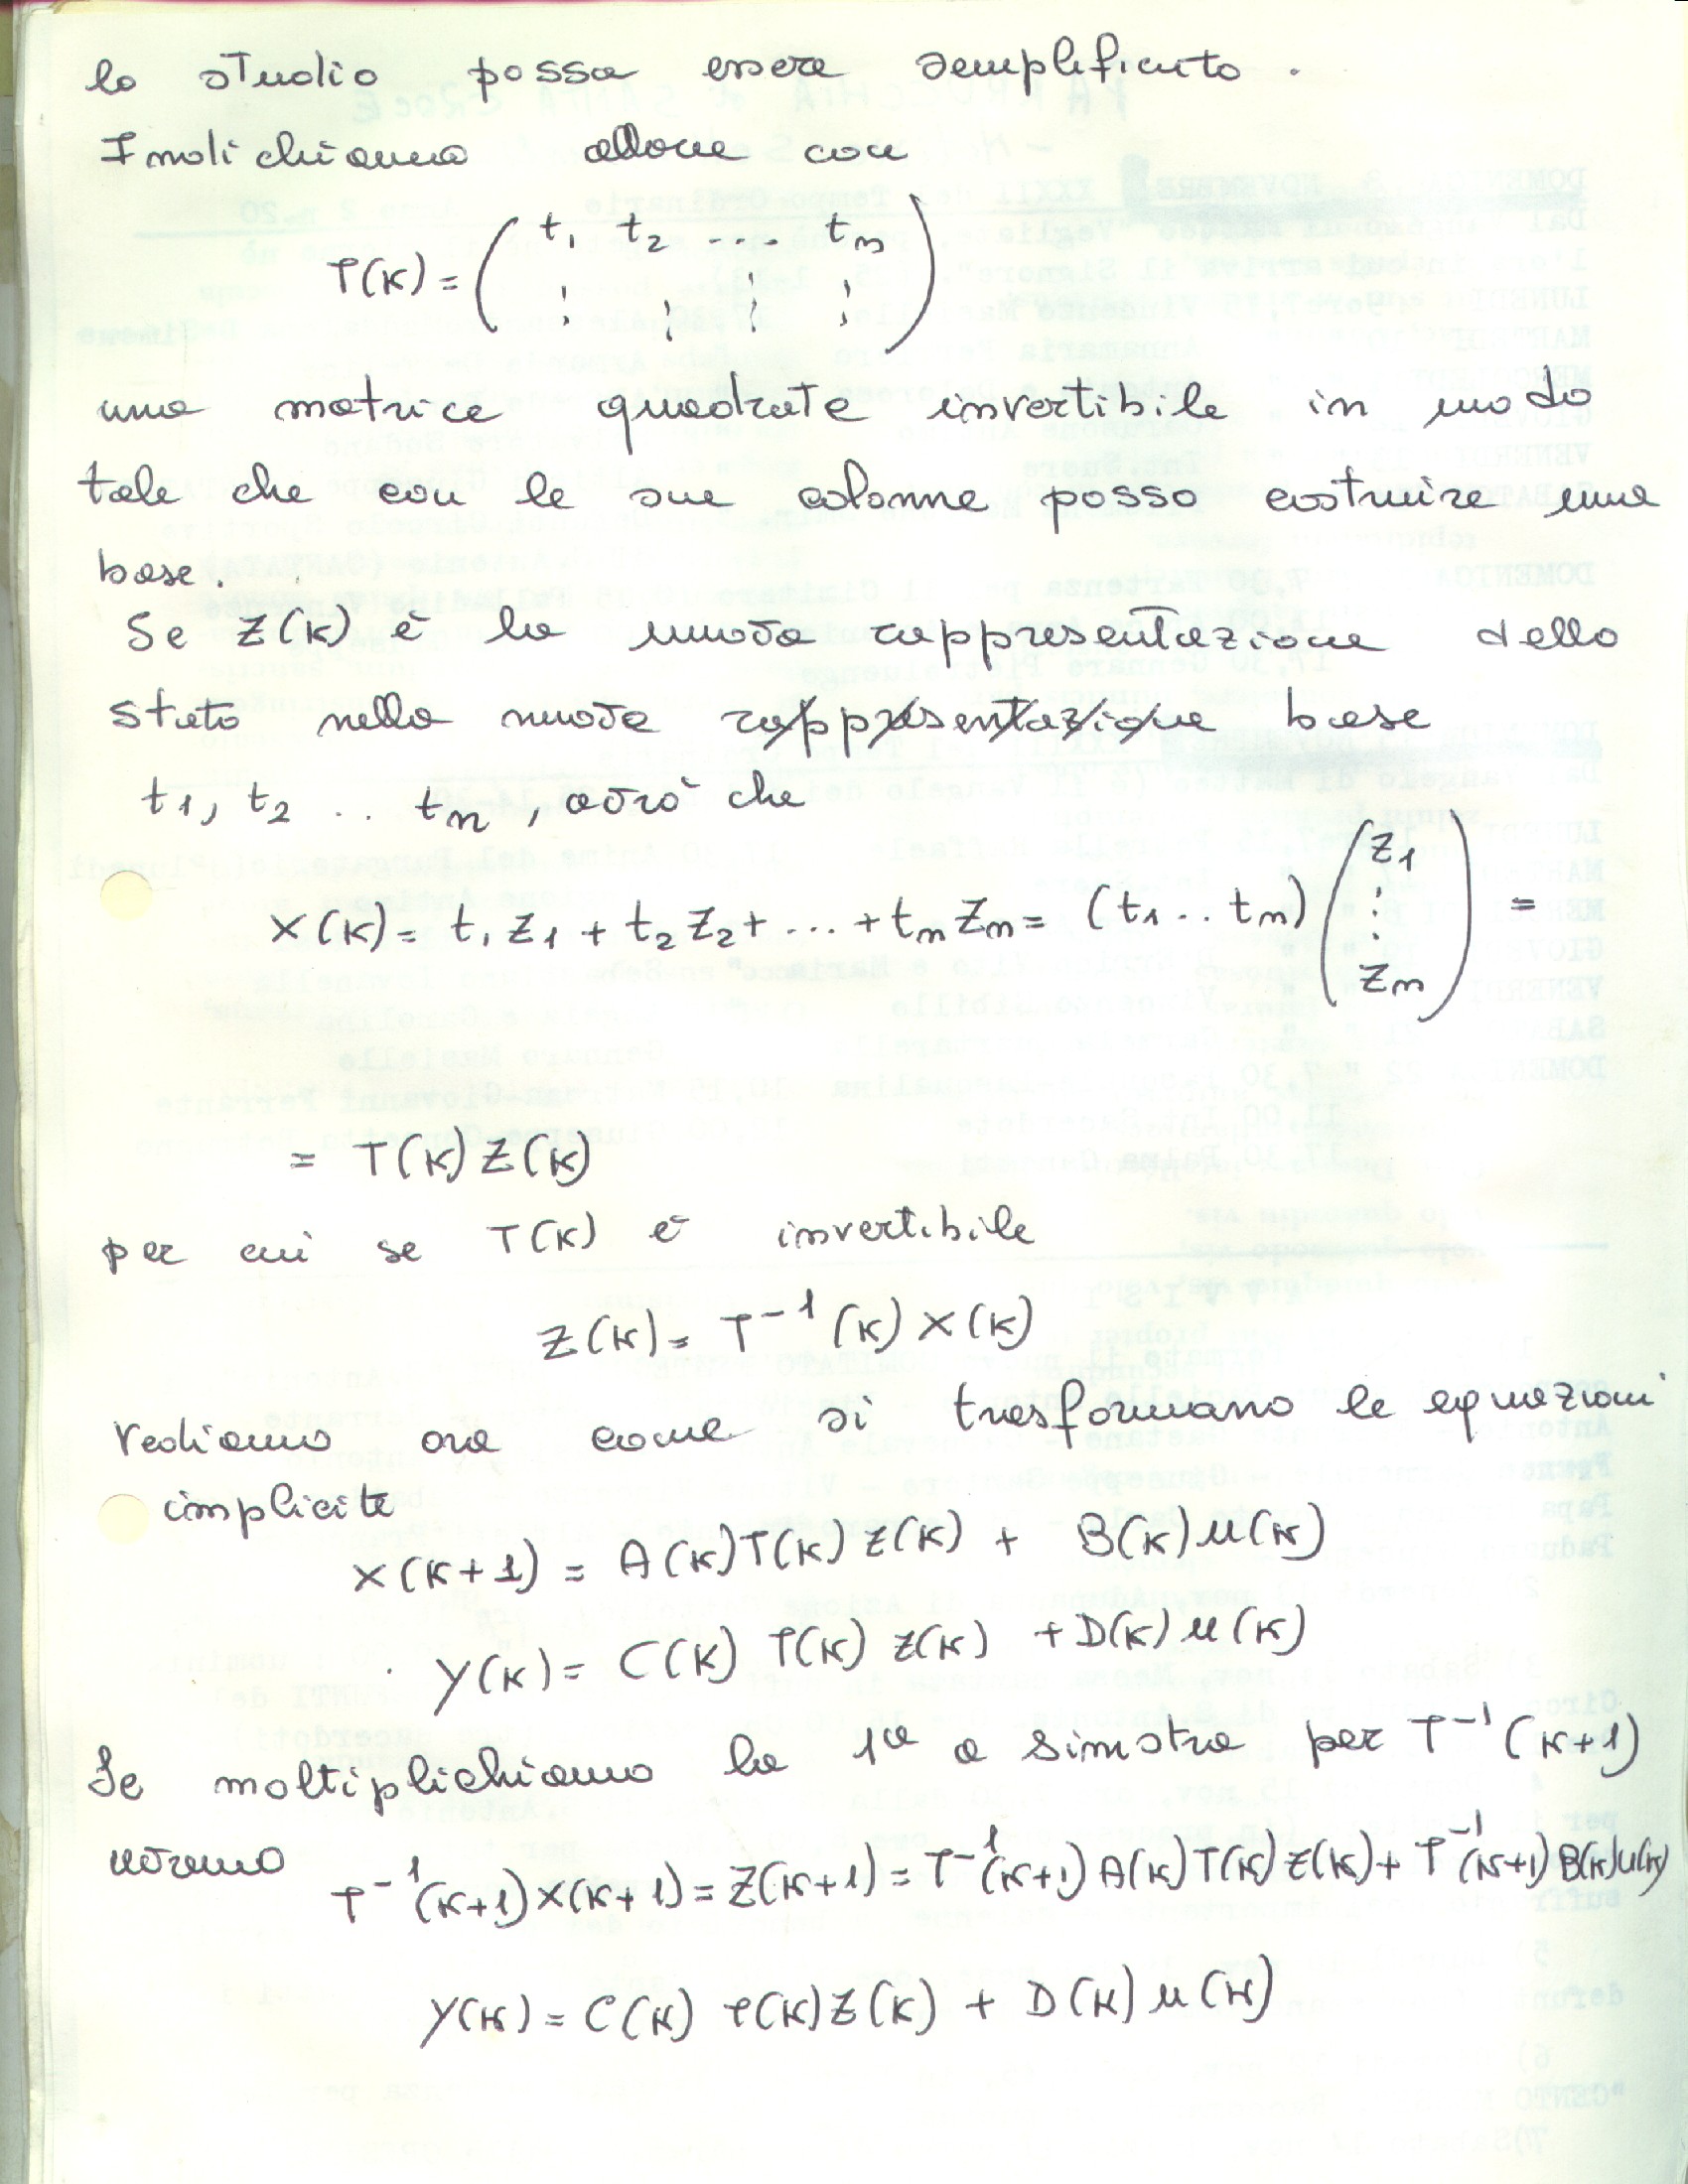 lo studio possa essere semplificato.
Indichiamo allora con
T(K) = ( t1 t2 .... tn )
una matrice quadrata invertibile in modo
tale che con le sue colonne posso costruire una
base.
Se Z(K) è la nuova rappresentazione dello
stato nella nuova rappresentazione base
t1, t2 .. tn, avrò che
X(K) = t1 Z1 + t2 Z2 + ... + tn Zn = (t1 .. tn) (Z1 ⋮ Zn) =
= T(K) Z(K)
per cui se T(K) è invertibile
Z(K) = T⁻¹(K) X(K)
Vediamo ora come si trasformano le equazioni
implicite
X(K+1) = A(K)T(K) Z(K) + B(K) u(K)
Y(K) = C(K) T(K) Z(K) + D(K) u(K)
Se moltiplichiamo la 1a a sinistra per T⁻¹(K+1)
avremo T⁻¹(K+1) X(K+1) = Z(K+1) = T⁻¹(K+1) A(K) T(K) Z(K) + T⁻¹(K+1) B(K) u(K)
Y(K) = C(K) T(K) Z(K) + D(K) u(K)